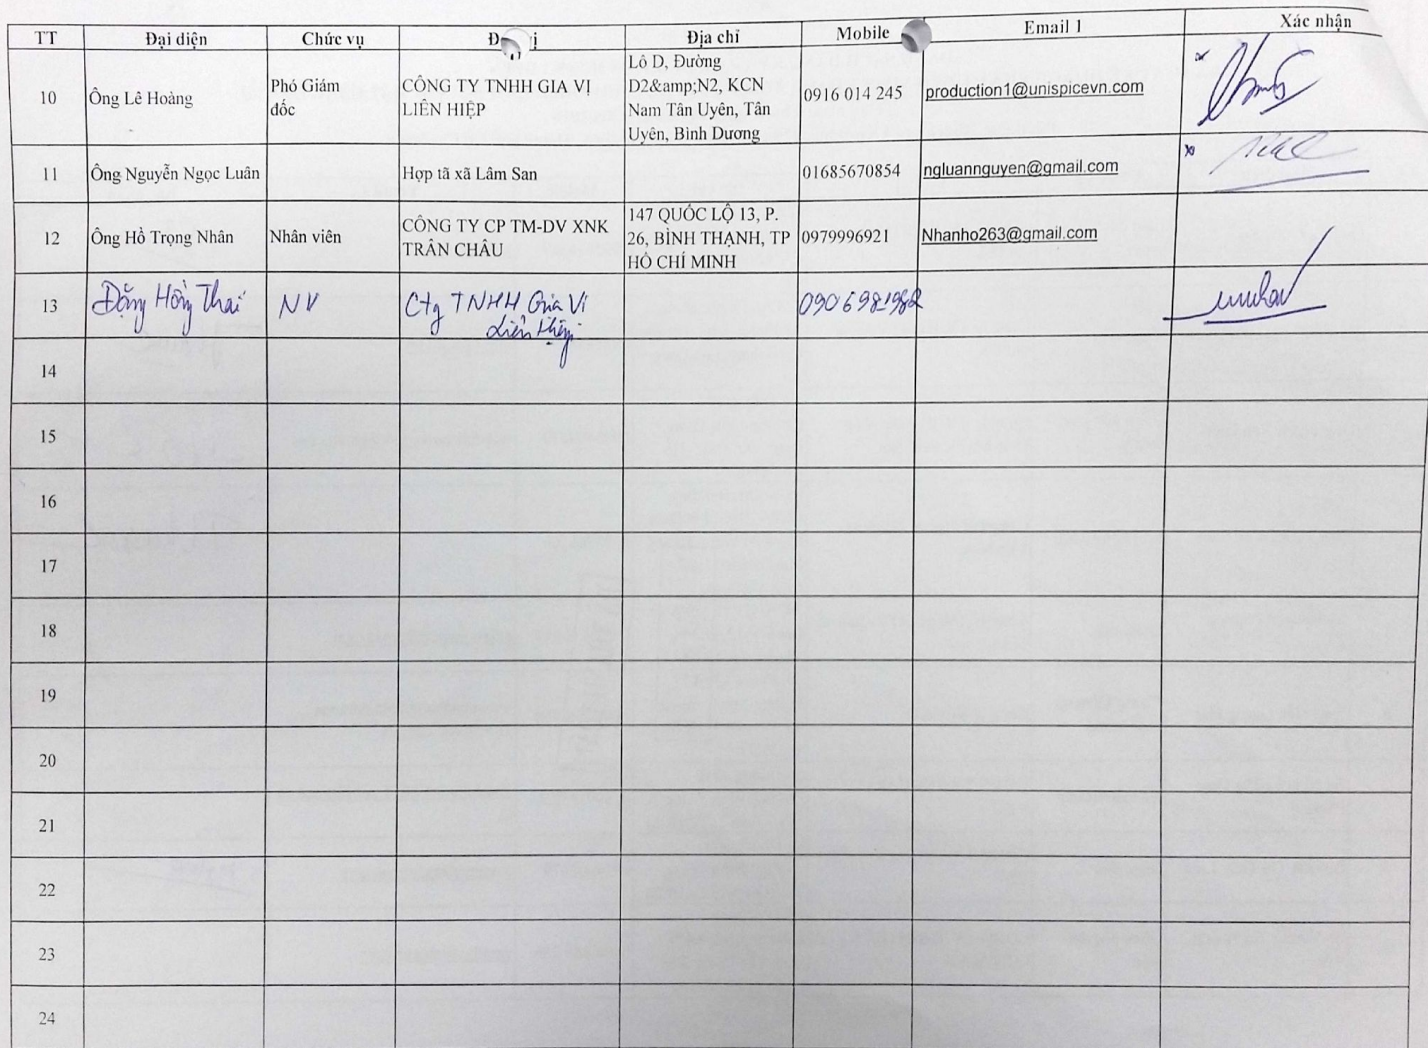 TT Đại diện Chức vụ Địa chỉ Mobile Email 1 Xác nhận
10 Ông Lê Hoàng Phó Giám đốc CÔNG TY TNHH GIA VỊ LIÊN HIỆP Lô D, Đường D2&amp;N2, KCN Nam Tân Uyên, Tân Uyên, Bình Dương 0916 014 245 production1@unispicevn.com
11 Ông Nguyễn Ngọc Luân Hợp tã xã Lâm San 01685670854 ngluannguyen@gmail.com
12 Ông Hồ Trọng Nhân Nhân viên CÔNG TY CP TM-DV XNK TRÂN CHÂU 147 QUỐC LỘ 13, P. 26, BÌNH THẠNH, TP HỒ CHÍ MINH 0979996921 Nhanho263@gmail.com
13 Đặng Hồng Thái NV Cty TNHH Gia Vị Liên Hiệp 0906981982
14
15
16
17
18
19
20
21
22
23
24